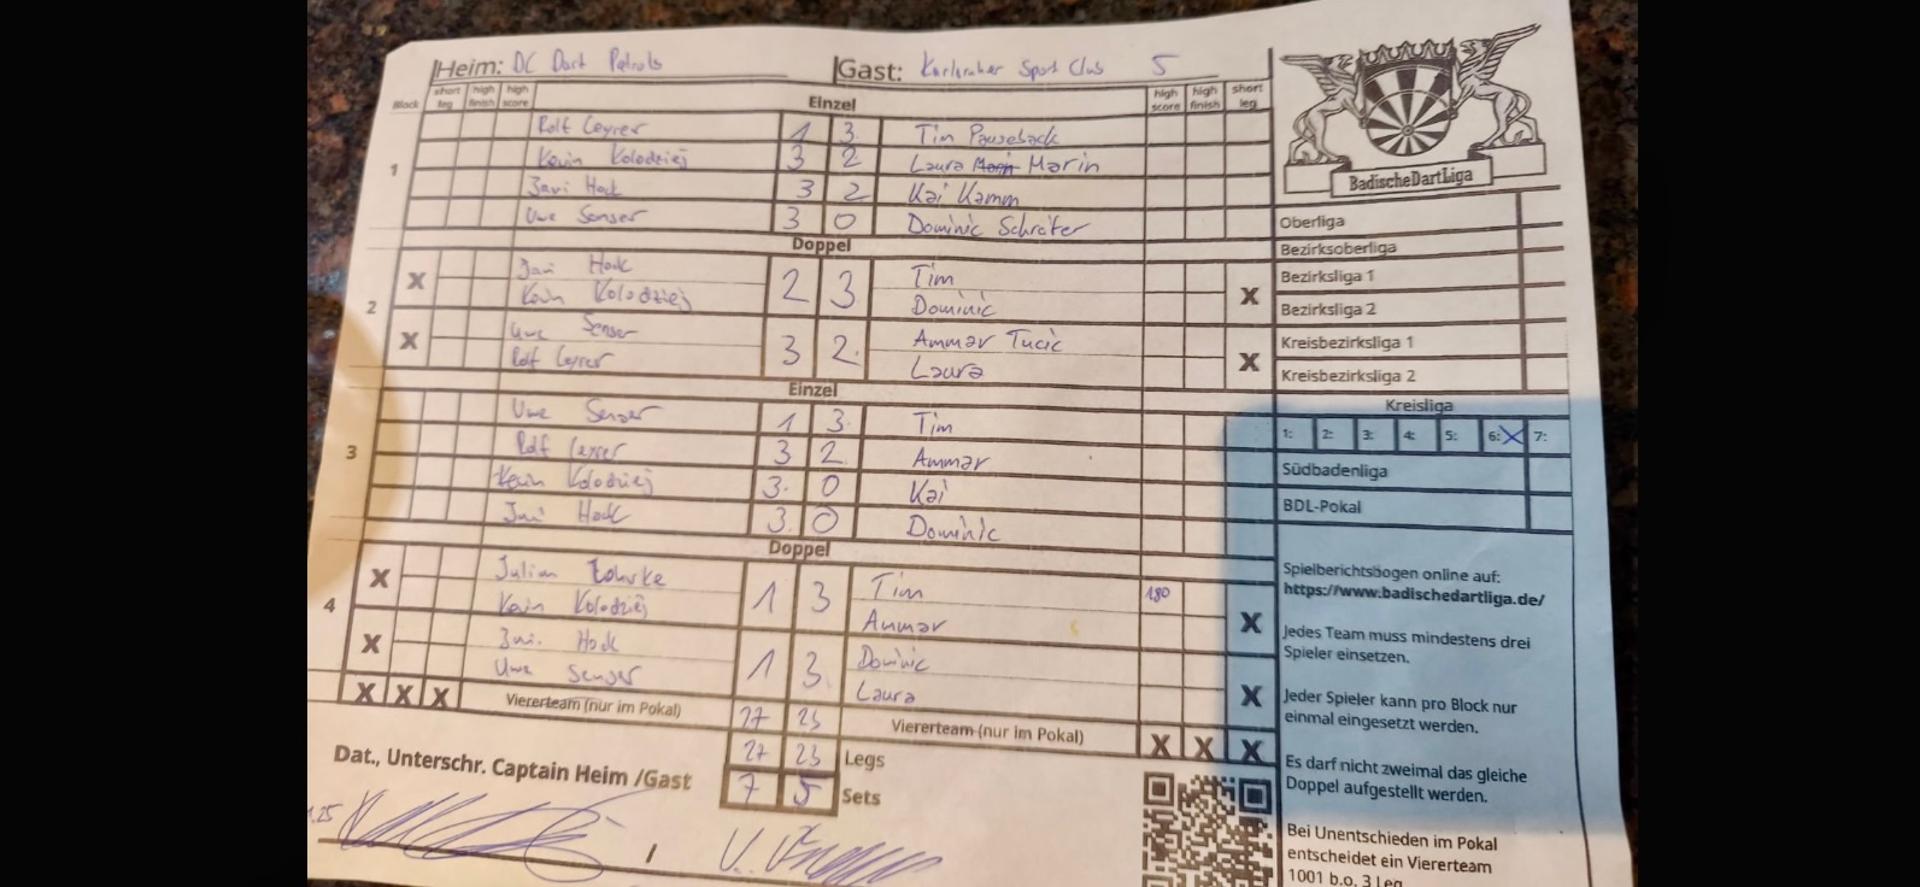 Heim: DC Dart Patrols Gast: Karlsruher Sport Club 5
Block short leg high finish high score Einzel high score high finish short leg
1
Rolf Leyrer 1 3 Tim Pauseback
Kevin Kolodziej 3 2 Laura Marin
Hock 3 2 Kai Kamm
Uwe Senser 3 0 Dominic Schröter
Doppel
2
X Hock 2 3 Tim X
Kevin Kolodziej Dominic
X Uwe Senser 3 2 Ammar Tucic X
Rolf Leyrer Laura
Einzel
3
Uwe Senser 1 3 Tim
Rolf Leyrer 3 2 Ammar
Kevin Kolodziej 3 0 Kai
Hock 3 0 Dominic
Doppel
4
X Julian 1 3 Tim 180 X
Kevin Kolodziej Ammar
X Hock 1 3 Dominic X
Uwe Senser Laura
X X X Viererteam (nur im Pokal) 27 23 Viererteam (nur im Pokal) X X X
27 23 Legs
7 5 Sets
Dat., Unterschr. Captain Heim /Gast
.25 /
BadischeDartLiga
Oberliga
Bezirksoberliga
Bezirksliga 1
Bezirksliga 2
Kreisbezirksliga 1
Kreisbezirksliga 2
Kreisliga
1: 2: 3: 4: 5: 6: X 7:
Südbadenliga
BDL-Pokal
Spielberichtsbogen online auf:
https://www.badischedartliga.de/
Jedes Team muss mindestens drei
Spieler einsetzen.
Jeder Spieler kann pro Block nur
einmal eingesetzt werden.
Es darf nicht zweimal das gleiche
Doppel aufgestellt werden.
Bei Unentschieden im Pokal
entscheidet ein Viererteam
1001 b.o. 3 Leg